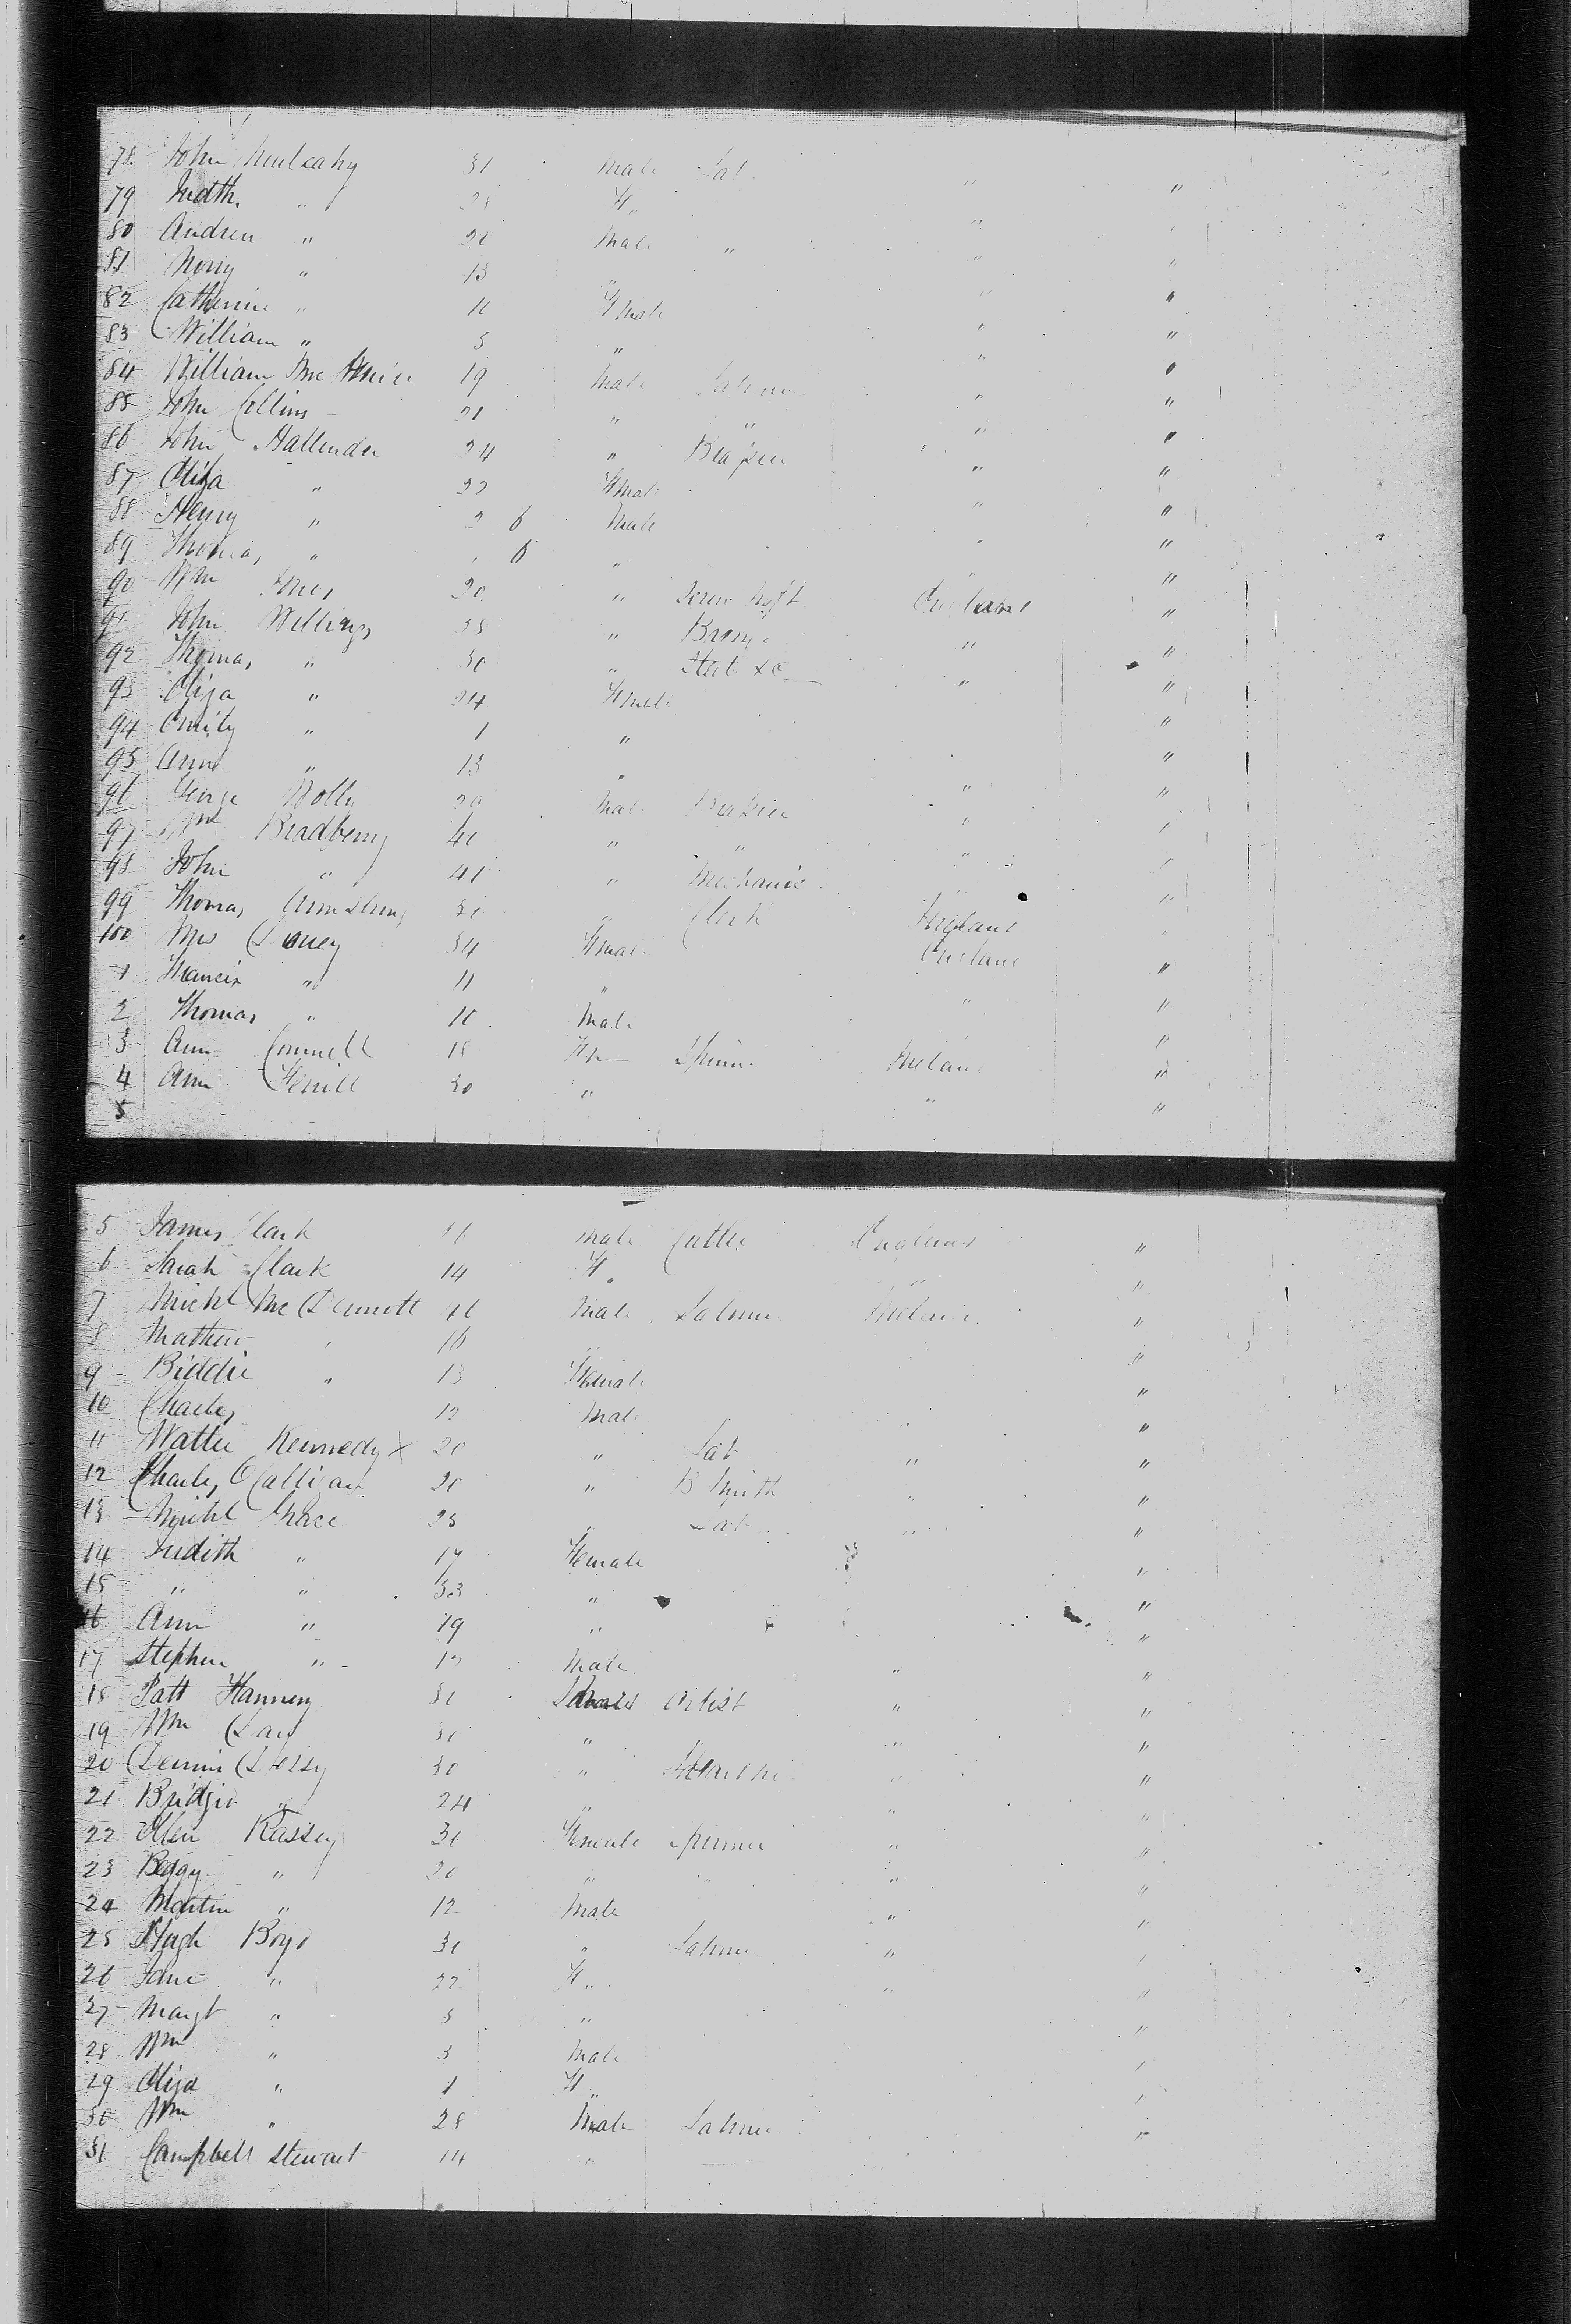 78 John Mulcahy 31 Male Lab " "
79 Judth. " 28 F "
80 Andrew " 20 Male " " "
81 " 13 " " "
82 Catherine " 11 Fmale " "
83 William " 5 " " "
84 William 19 Male Labour " "
85 John Collins 21 " " " "
86 John Hallender 24 " Brazier " "
87 Eliza " 22 Fmale " "
88 Henry " 2 6 Male " "
89 Thomas " 6 " " "
90 Wm Jones 20 " England "
91 John Willings 25 " " "
92 Thomas " 30 " " "
93 Eliza " 24 Fmale "
94 " 1 " "
95 Ann " 13 " "
96 George 29 Male Brazier " "
97 Wm Bradberry 40 " " " "
98 John " 41 " Mechanic " "
99 Thomas Armstrong 30 " Clerk Ireland "
100 Mrs 34 Fmale England "
1 Francis " 11 " " "
2 Thomas " 10 Male "
3 Ann Connell 18 Spinner Ireland "
4 Ann 30 " " "
5
5 James Clark 16 Male Cutler England "
6 Sarah Clark 14 F " "
7 Michl Mc Dermott 46 Male Labour Ireland "
8 Mathew " 16 " "
9 Biddie " 13 Female "
10 Charles 12 Male " "
11 Walter Kennedy X 20 " Lab " "
12 Charles O Calligan 20 " B Smith " "
13 Michl Grace 25 " Lab " "
14 Judith " 17 Female "
15 " " 53 " "
16 Ann " 19 " "
17 Stephen " 12 Male " "
18 Patt Flannery 30 Artist " "
19 Wm Day 30 " " " "
20 Dennis 30 " "
21 Bridgit " 24 " " "
22 Ellen 30 Female Spinner " "
23 " 20 " " " "
24 Martin " 12 Male " "
25 Hugh Boyd 30 " Labour " "
26 Jane " 22 F " " "
27 Margt " 5 " "
28 Wm " 3 Male "
29 Eliza " 1 F " "
30 Wm " 28 Male Labour "
31 Campbell Stewart 14 "